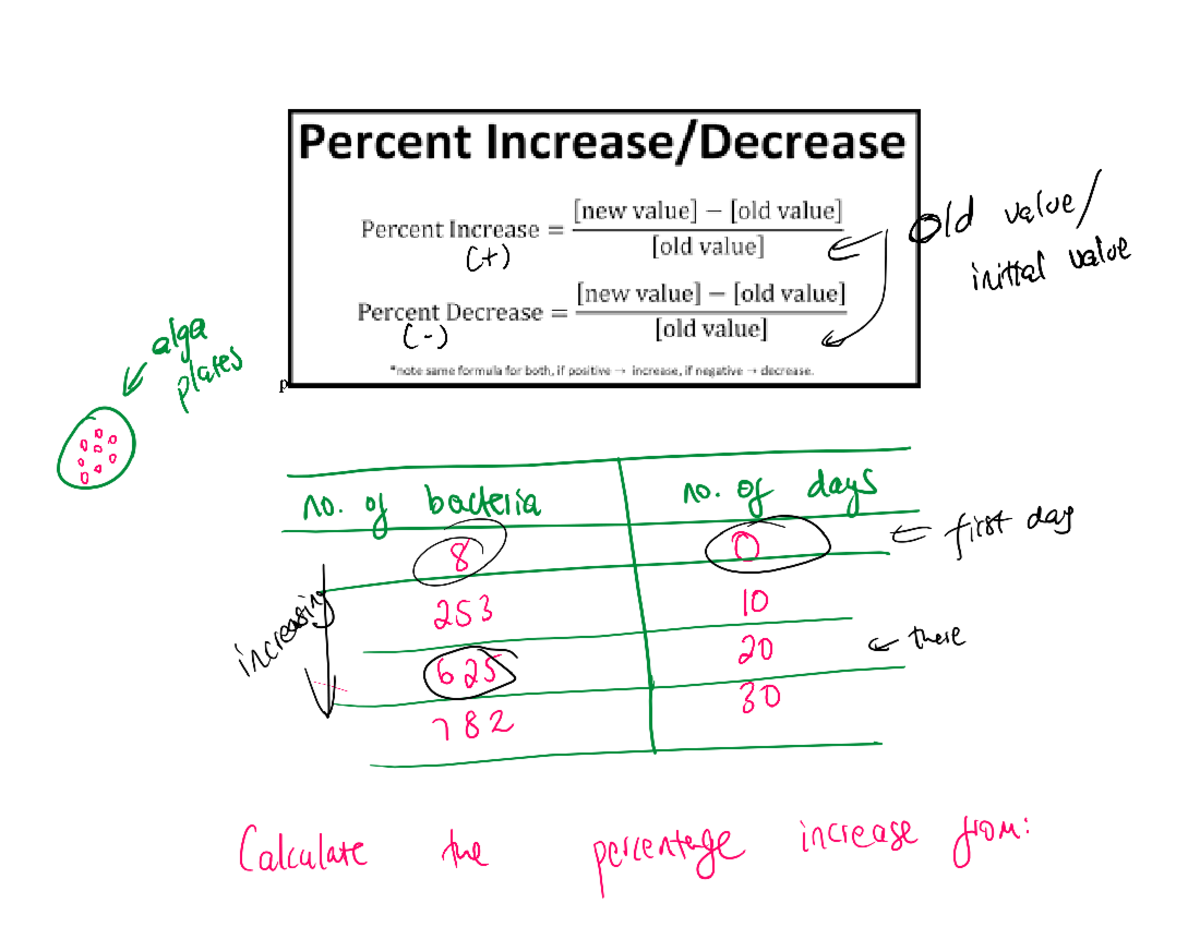 Percent Increase/Decrease
Percent Increase = [new value] − [old value] / [old value]
(+)
Percent Decrease = [new value] − [old value] / [old value]
(-)
*note same formula for both, if positive → increase, if negative → decrease.
p
old value/
initial value
alga
plates
no. of bacteria no. of days
8 0
← first day
253 10
625 20
← there
782 30
increasing
Calculate the percentage increase from: